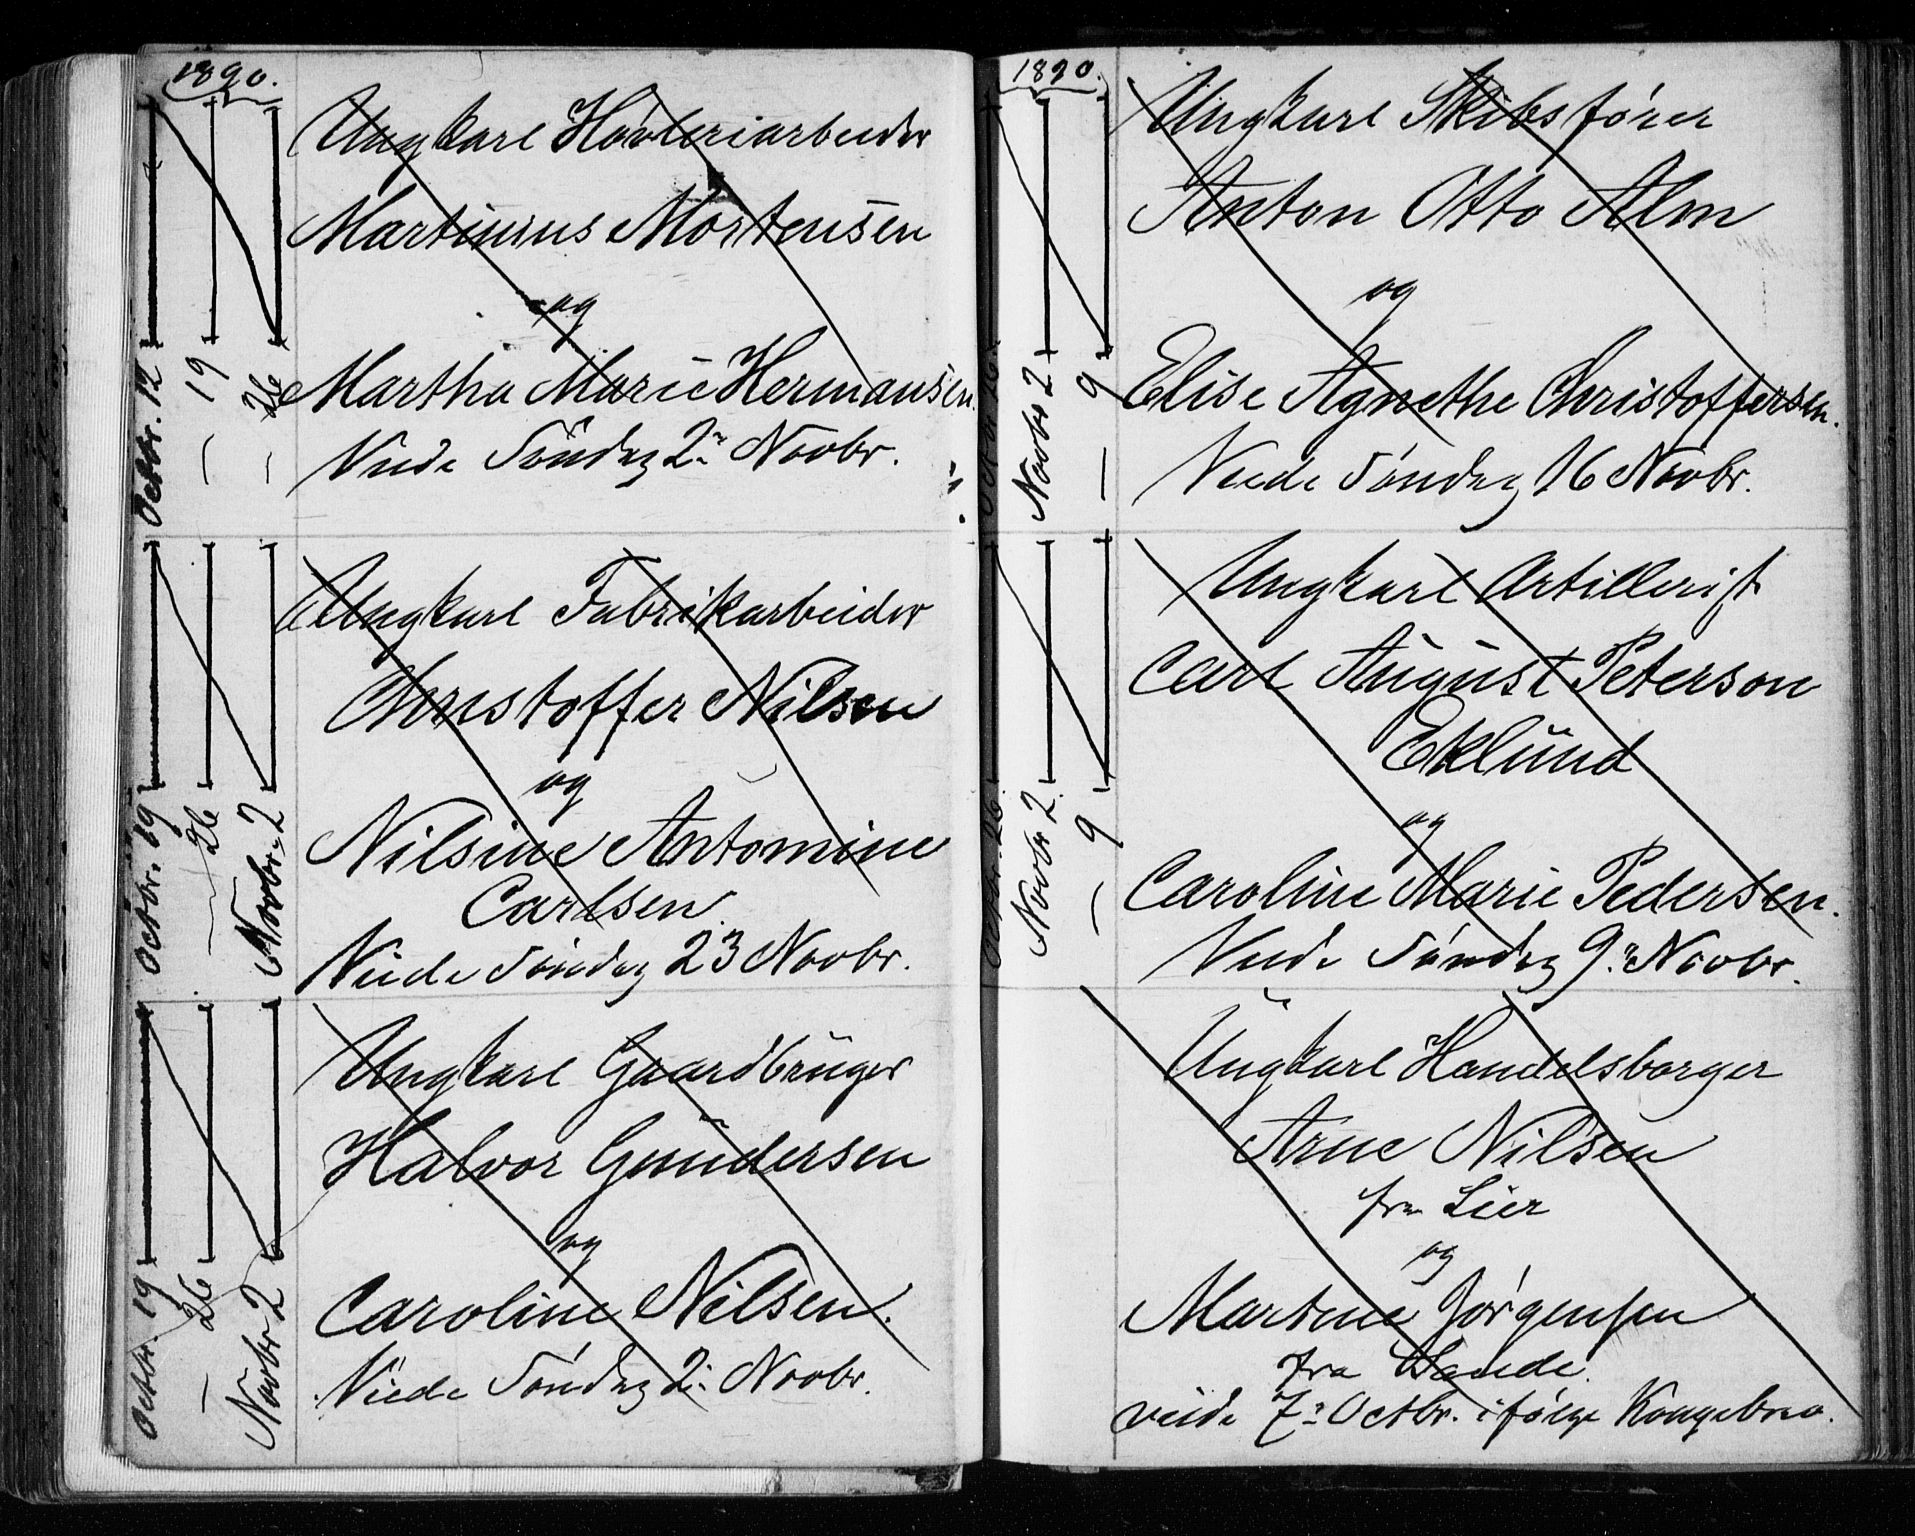 1890.
Octbr. 12
— 19
— 26
Ungkarl Høvleriarbeider
Martinius Mortensen
og
Martha Marie Hermansen
Viede Søndag 2n Novbr.
Octbr. 19
— 26
Novbr. 2
Ungkarl Fabrikarbeider
Christoffer Nilsen
og
Nilsine Antomine
Carlsen.
Viede Søndag 23 Novbr.
Octbr. 19
— 26
Novbr 2
Ungkarl Gaardbruger
Halvor Gundersen
og
Caroline Nilsen.
Viede Søndag 2n Novbr.
1890.
Novbr 2.
— 9
Ungkarl Skibsfører
Anton Otto Alm
og
Elise Agnethe Christoffersen.
Viede Søndag 16 Novbr.
Octbr. 26.
Novbr 2.
— 9
Ungkarl Artillerist
Carl August Peterson
Eklund
og
Caroline Marie Pedersen.
Viede Søndag 9n Novbr.
Ungkarl Handelsborger
Arne Nilsen
fra Lier
og
Martine Jørgensen
fra Sande.
viede 7n Octbr. ifølge Kongebrev.